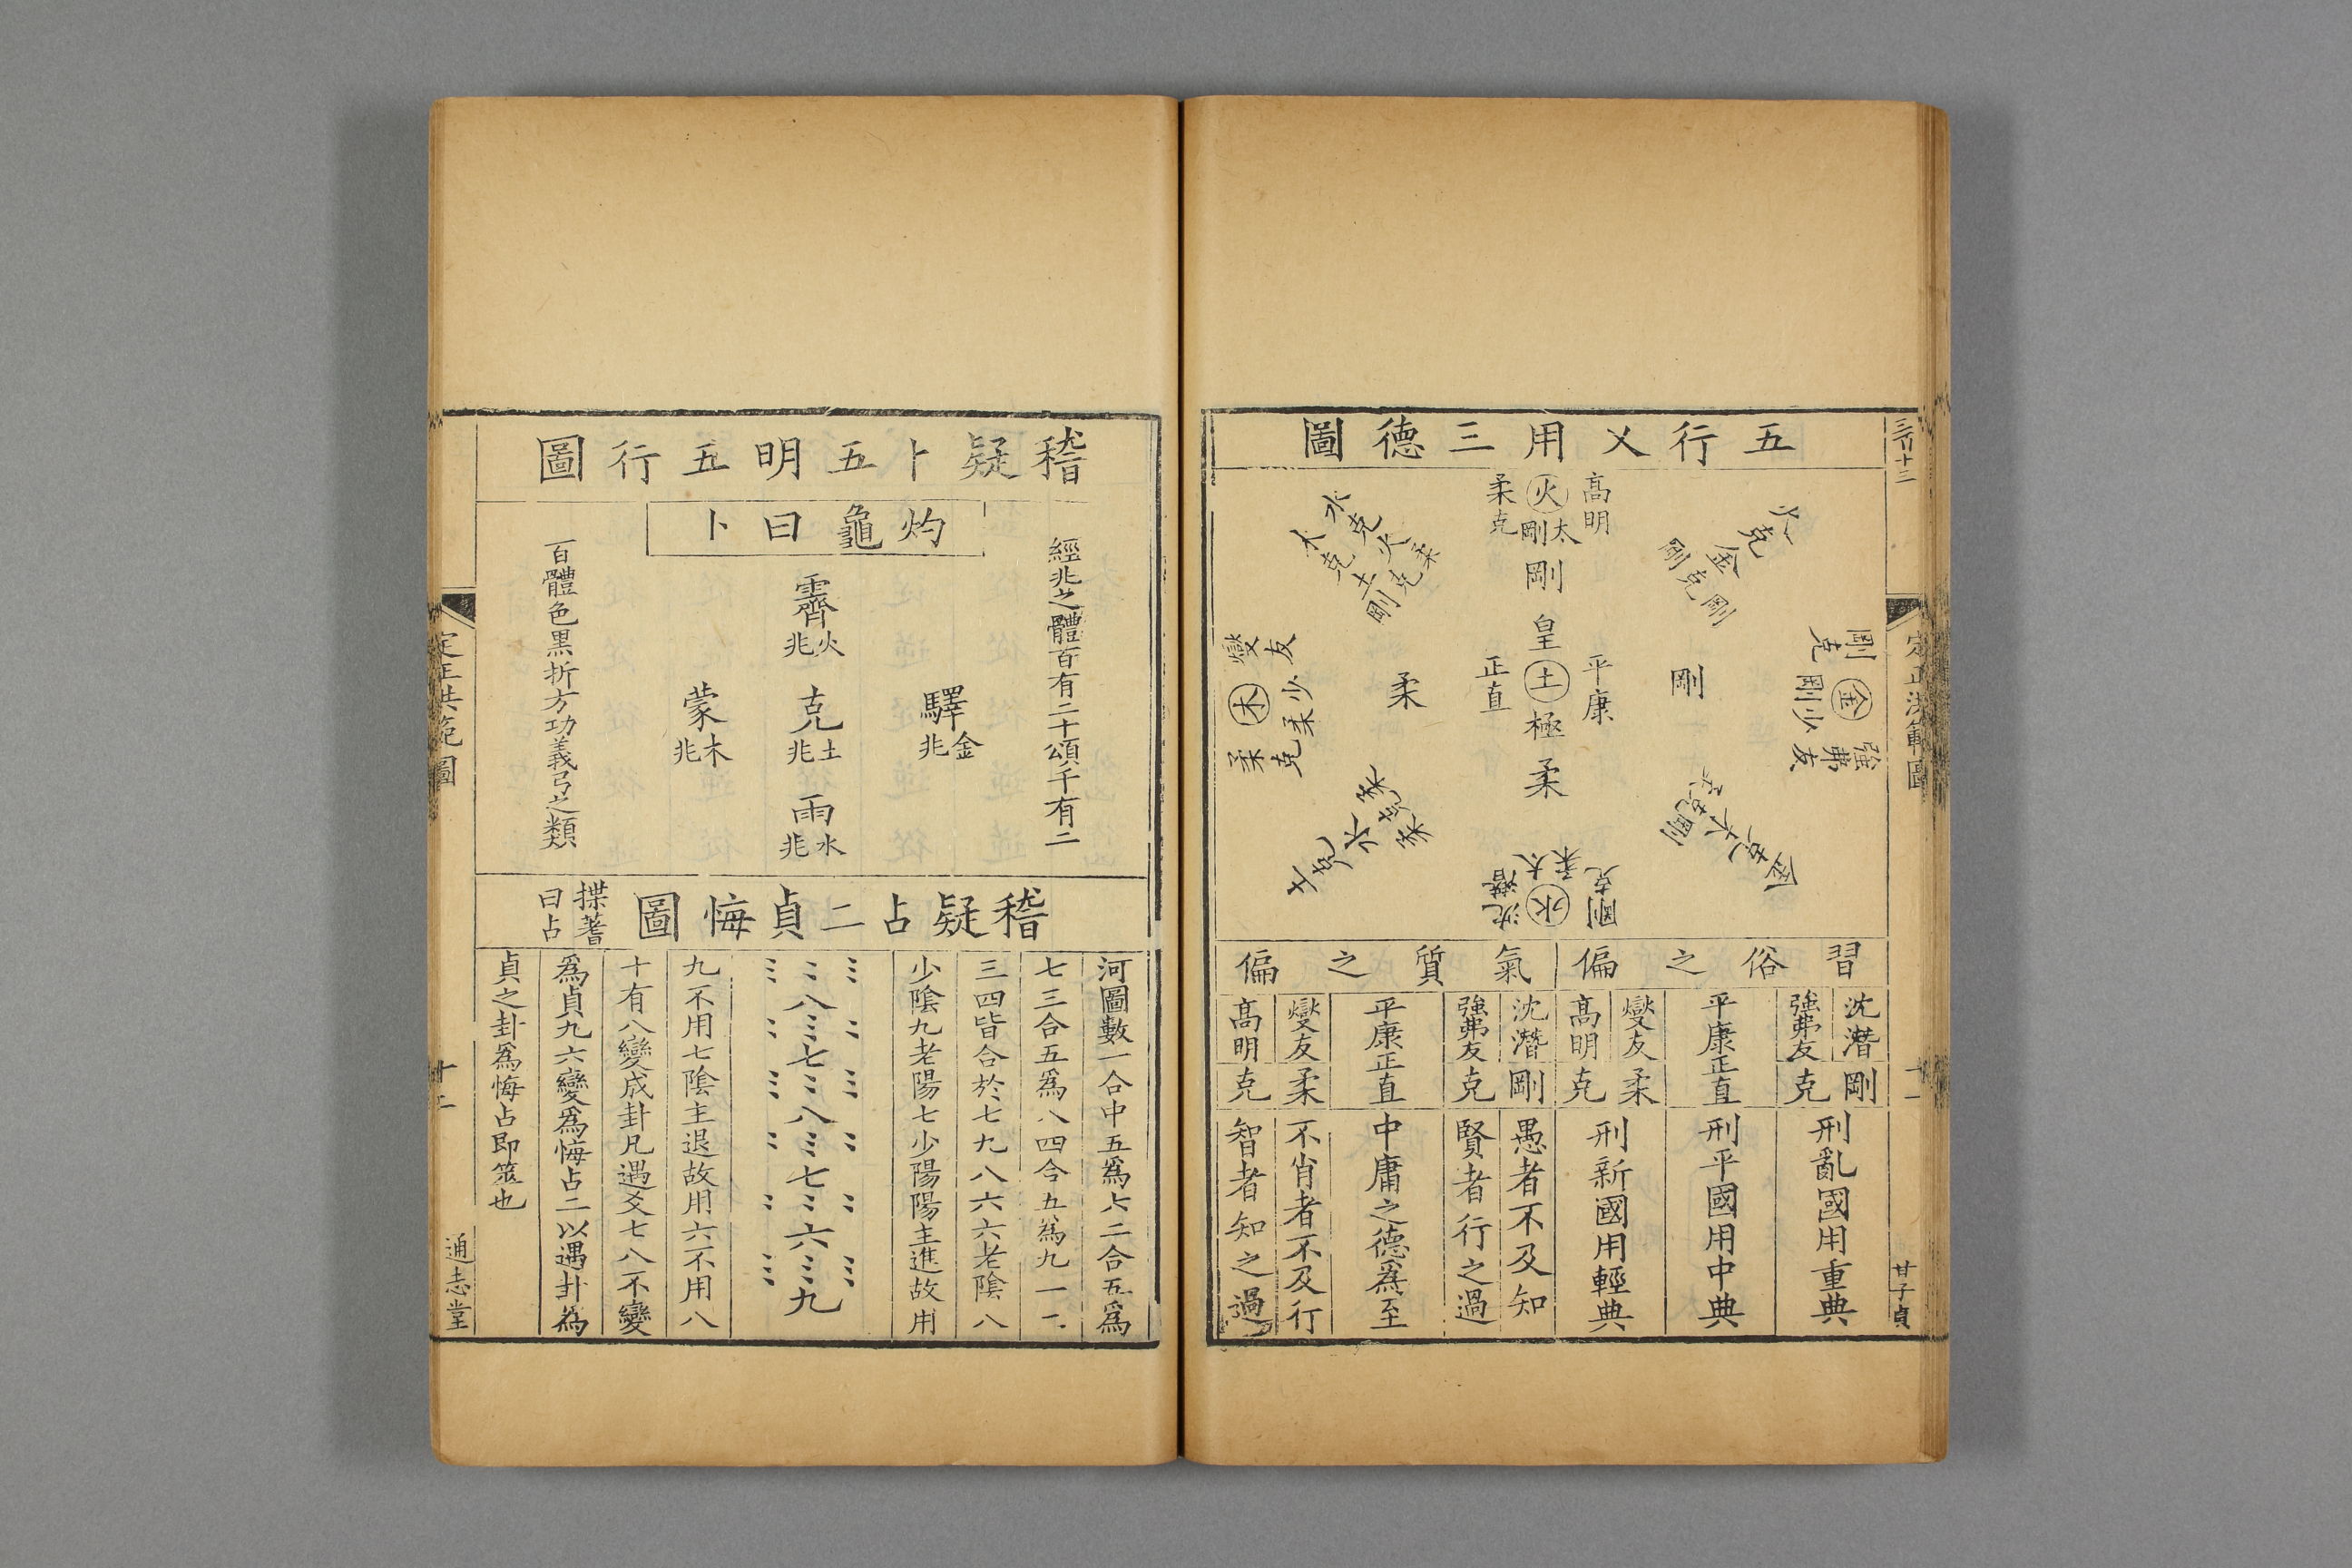 三百十二
定正洪範圖
十一
甘子貞
五行乂用三德圖
高明
火
太剛
柔克
火克金
剛克剛
剛克
金
少剛
強弗友
金克木
土克水
水克火
木克土
柔克剛
燮友
木
少柔
柔克
沈潛
水
太柔
剛克
剛
皇
土
極
柔
平康
正直
剛
柔
習俗之偏
氣質之偏
沈潛剛
強弗友克
刑亂國用重典
平康正直
刑平國用中典
燮友柔
高明克
刑新國用輕典
沈潛剛
愚者不及知
強弗友克
賢者行之過
平康正直
中庸之德為至
燮友柔
不肖者不及行
高明克
智者知之過
稽疑卜五明五行圖
灼龜曰卜
經兆之體百有二十頌千有二
霽火兆
驛金兆
克土兆
蒙木兆
雨水兆
百體色黒折方功義弓之類
稽疑占二貞悔圖
揲蓍曰占
河圖數一合中五爲六二合五爲
七三合五爲八四合五爲九一二
三四皆合於七九八六六老陰八
少陰九老陽七少陽陽主進故用
八七八七六九
九不用七陰主退故用六不用八
十有八變成卦凡遇爻七八不變
爲貞九六變爲悔占二以遇卦爲
貞之卦爲悔占即筮也
定正洪範圖
十二
通志堂